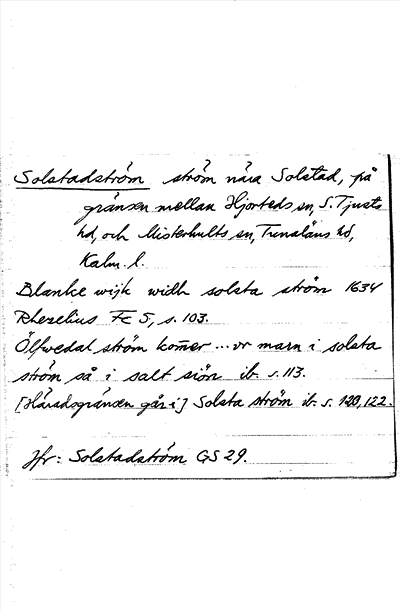 Solstadström ström nära Solstad, på
gränsen mellan Hjorteds sn, S. Tjusts
hd, och Misterhults sn, Tunaläns hd,
Kalm. l.
Blanke wijk widh solsta ström 1634
Rhezelius Fc 5, s. 103.
Ölfwedal ström kom̄er ... vr marn i solsta
ström så i salt siön ib. s. 113.
[Häradsgränsen går i] Solsta ström ib. s. 120, 122.
Jfr: Solstadström GS 29.